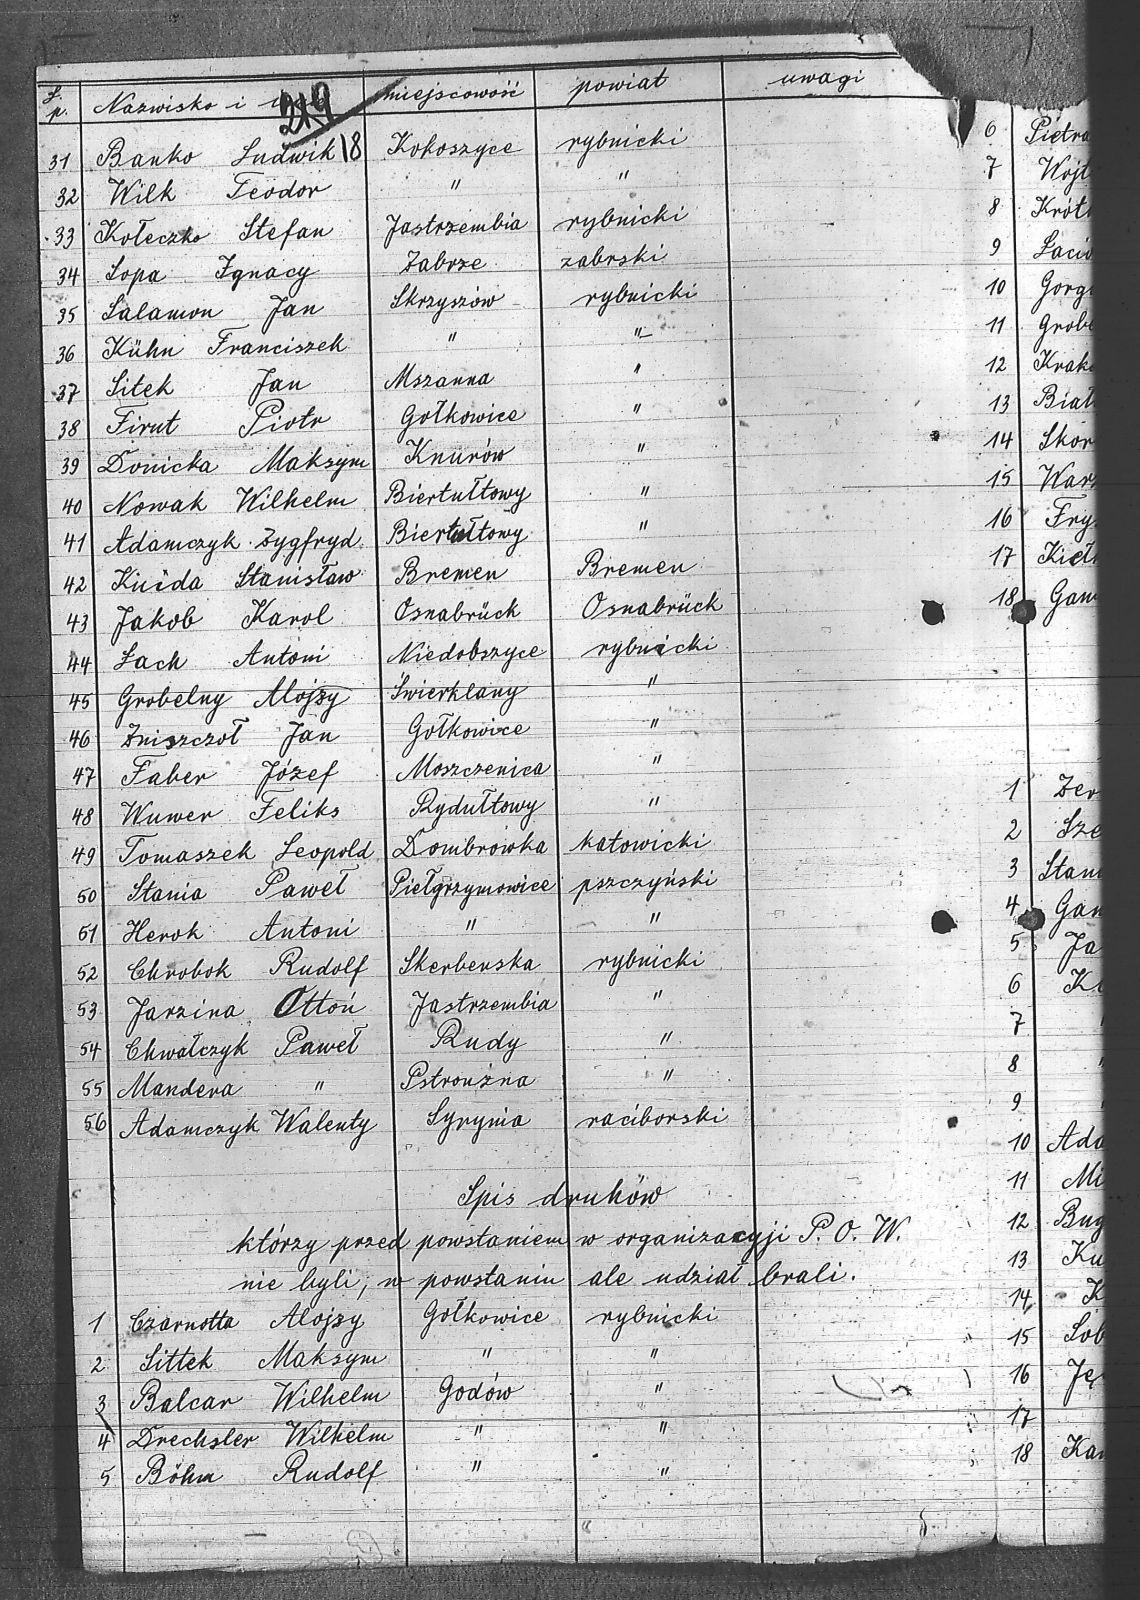 L.p. Nazwisko i miejscowość powiat uwagi
219
31 Banko Ludwik 18 Kokoszyce rybnicki
32 Wilk Teodor " "
33 Kołeczko Stefan Jastrzembia rybnicki
34 Lopa Ignacy Zabrze zabrski
35 Salamon Jan Skrzyszów rybnicki
36 Kühn Franciszek " "
37 Sitek Jan Mszanna "
38 Firut Piotr Gołkowice "
39 Donicka Maksym Knurów "
40 Nowak Wilhelm Biertułtowy "
41 Adamczyk Zygfryd Biertułtowy "
42 Kuida Stanisław Bremen Bremen
43 Jakob Karol Osnabrück Osnabrück
44 Lach Antoni Niedobszyce rybnicki
45 Grobelny Alojzy Świerklany "
46 Zniszczoł Jan Gołkowice "
47 Faber Józef Moszczenica "
48 Wuwer Feliks Rydułtowy "
49 Tomaszek Leopold Dombrówka katowicki
50 Stania Paweł Pielgrzymowice pszczyński
51 Herok Antoni " "
52 Chrobok Rudolf Skerbenska rybnicki
53 Jarzina Ottoń Jastrzembia "
54 Chwałczyk Paweł Rudy "
55 Mandera " Pstrouzna "
56 Adamczyk Walenty Syrynia raciborski
Spis druhów
którzy przed powstaniem w organizacyji P. O. W.
nie byli, w powstaniu ale udział brali.
1 Czarnotta Alojzy Gołkowice rybnicki
2 Sittek Maksym " "
3 Balcar Wilhelm Godów "
4 Drechsler Wilhelm " "
5 Böhm Rudolf " "
"
6 Pietra
7 Wojt
8 Król
9 Łacio
10 Gorg
11 Grobe
12 Krak
13 Biał
14 Skor
15 War
16 Fry
17 Kieł
18 Gam
1 Zer
2 Sze
3 Stan
4 Gan
5 Ja
6 K
7 "
8 "
9
10 Ada
11 Mi
12 Bug
13 Ku
14 K
15 Sob
16 Ję
17
18 Kan